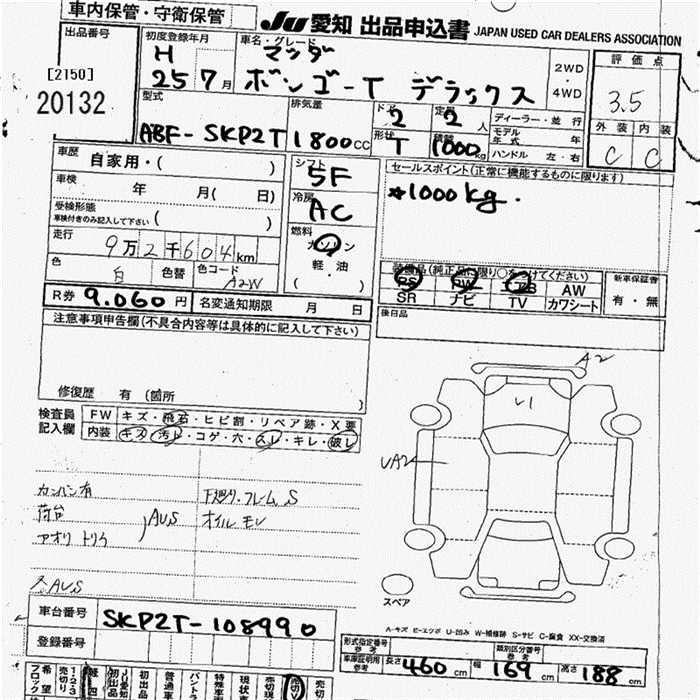 車内保管・守衛保管
JU 愛知 出品申込書 JAPAN USED CAR DEALERS ASSOCIATION
出品番号
[2150]
20132
初度登録年月
H
25 7月
車名・グレード
マツダ
ボンゴーT デラックス
2WD
・
4WD
評価点
3.5
外装 内装
C C
型式
ABF-SKP2T
排気量
1800CC
ドア
2
定員
2人
形状
T
積載
1000kg
ディーラー・並行
モデル
年式 年
ハンドル 左・右
車歴
自家用・( )
車検
年 月( 日)
受検形態
車検付きのみ記入して下さい ( )
走行
9万2千604km
色
白
色替
色コード
A2W
シフト
5F
冷房
AC
燃料
ガソリン
軽・油
( )
セールスポイント(正常に機能するものに限ります)
*1000kg.
装備品(純正品に限り○をつけてください)
PS PW AW
SR ナビ TV カワシート
新車保証書
有・無
後日品
R券 9.060円 名変通知期限 月 日
注意事項申告欄(不具合内容等は具体的に記入して下さい)
修復歴 有 (箇所 )
検査員
記入欄
FW キズ・飛石・ヒビ割・リペア跡・X要
内装 キズ・汚レ・コゲ・穴・スレ・キレ・破レ
カンバン有
荷台
アオリ トリク
AUS
下廻り・フレム S
オイル モレ
スAUS
A2
U1
UA2
スペア
A-キズ E-エクボ U-凹み W-補修跡 S-サビ C-腐食 XX-交換済
車台番号
SKP2T-108990
登録番号
形式指定番号
参考
類別区分番号
参考
車庫証明用
参考
長さ 460cm 幅 169cm 高さ 188cm
ブロック
希望
売切り
1・2・3
初出品
普通車
バントラ
特殊車
現状車
売切